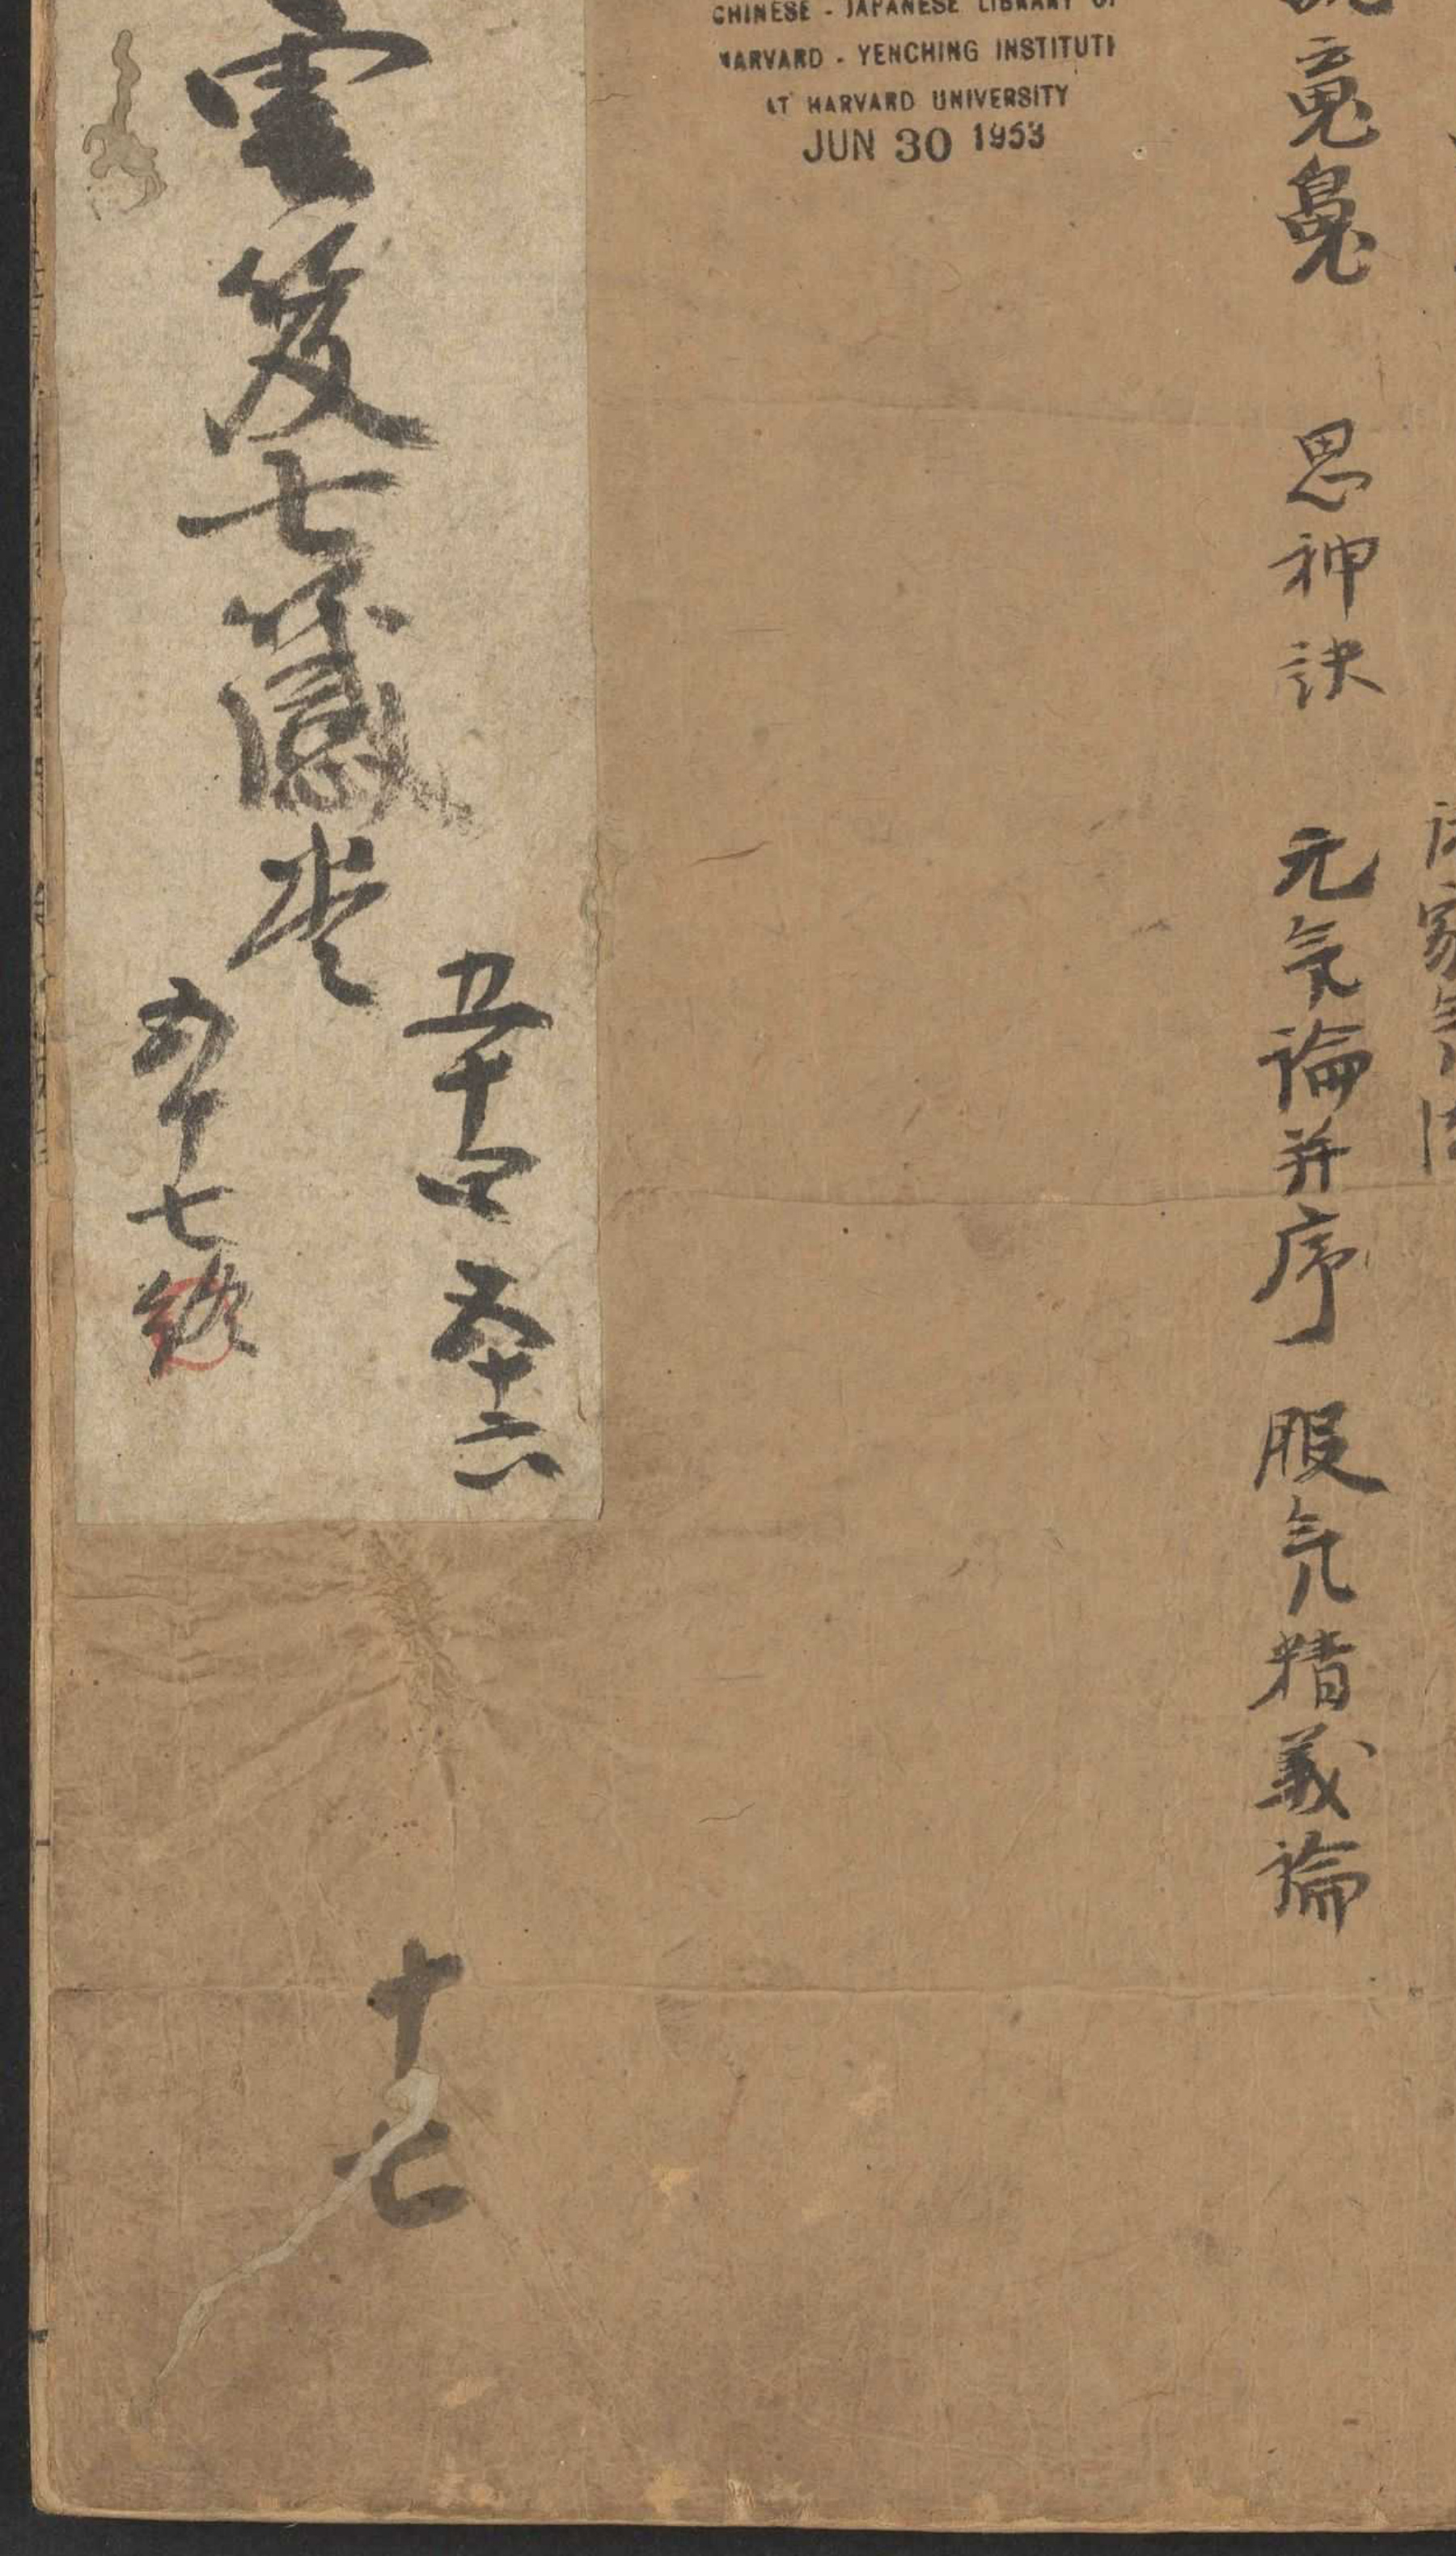 CHINESE - JAPANESE LIBRARY OF
HARVARD - YENCHING INSTITUTE
AT HARVARD UNIVERSITY
JUN 30 1953
思神訣 元氣論并序 服气精義論
雲笈七籤卷
五十四 五十六
五十七終
十七